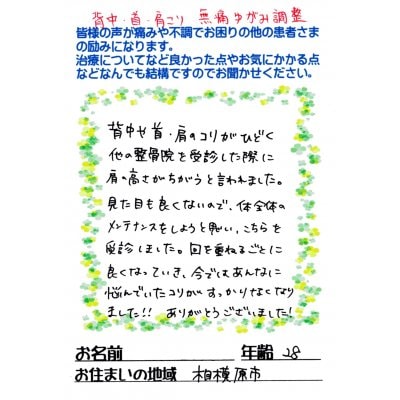 背中・首・肩こり 無痛ゆがみ調整
皆様の声が痛みや不調でお困りの他の患者さま
の励みになります。
治療についてなど良かった点やお気にかかる点
などなんでも結構ですのでお聞かせください。
背中や首・肩のコリがひどく
他の整骨院を受診した際に
肩の高さがちがうと言われました。
見た目も良くないので、体全体の
メンテナンスをしようと思い、こちらを
受診しました。回を重ねるごとに
良くなっていき、今ではあんなに
悩んでいたコリがすっかりなくなり
ました!! ありがとうございました!
お名前 年齢 28
お住まいの地域 相模原市